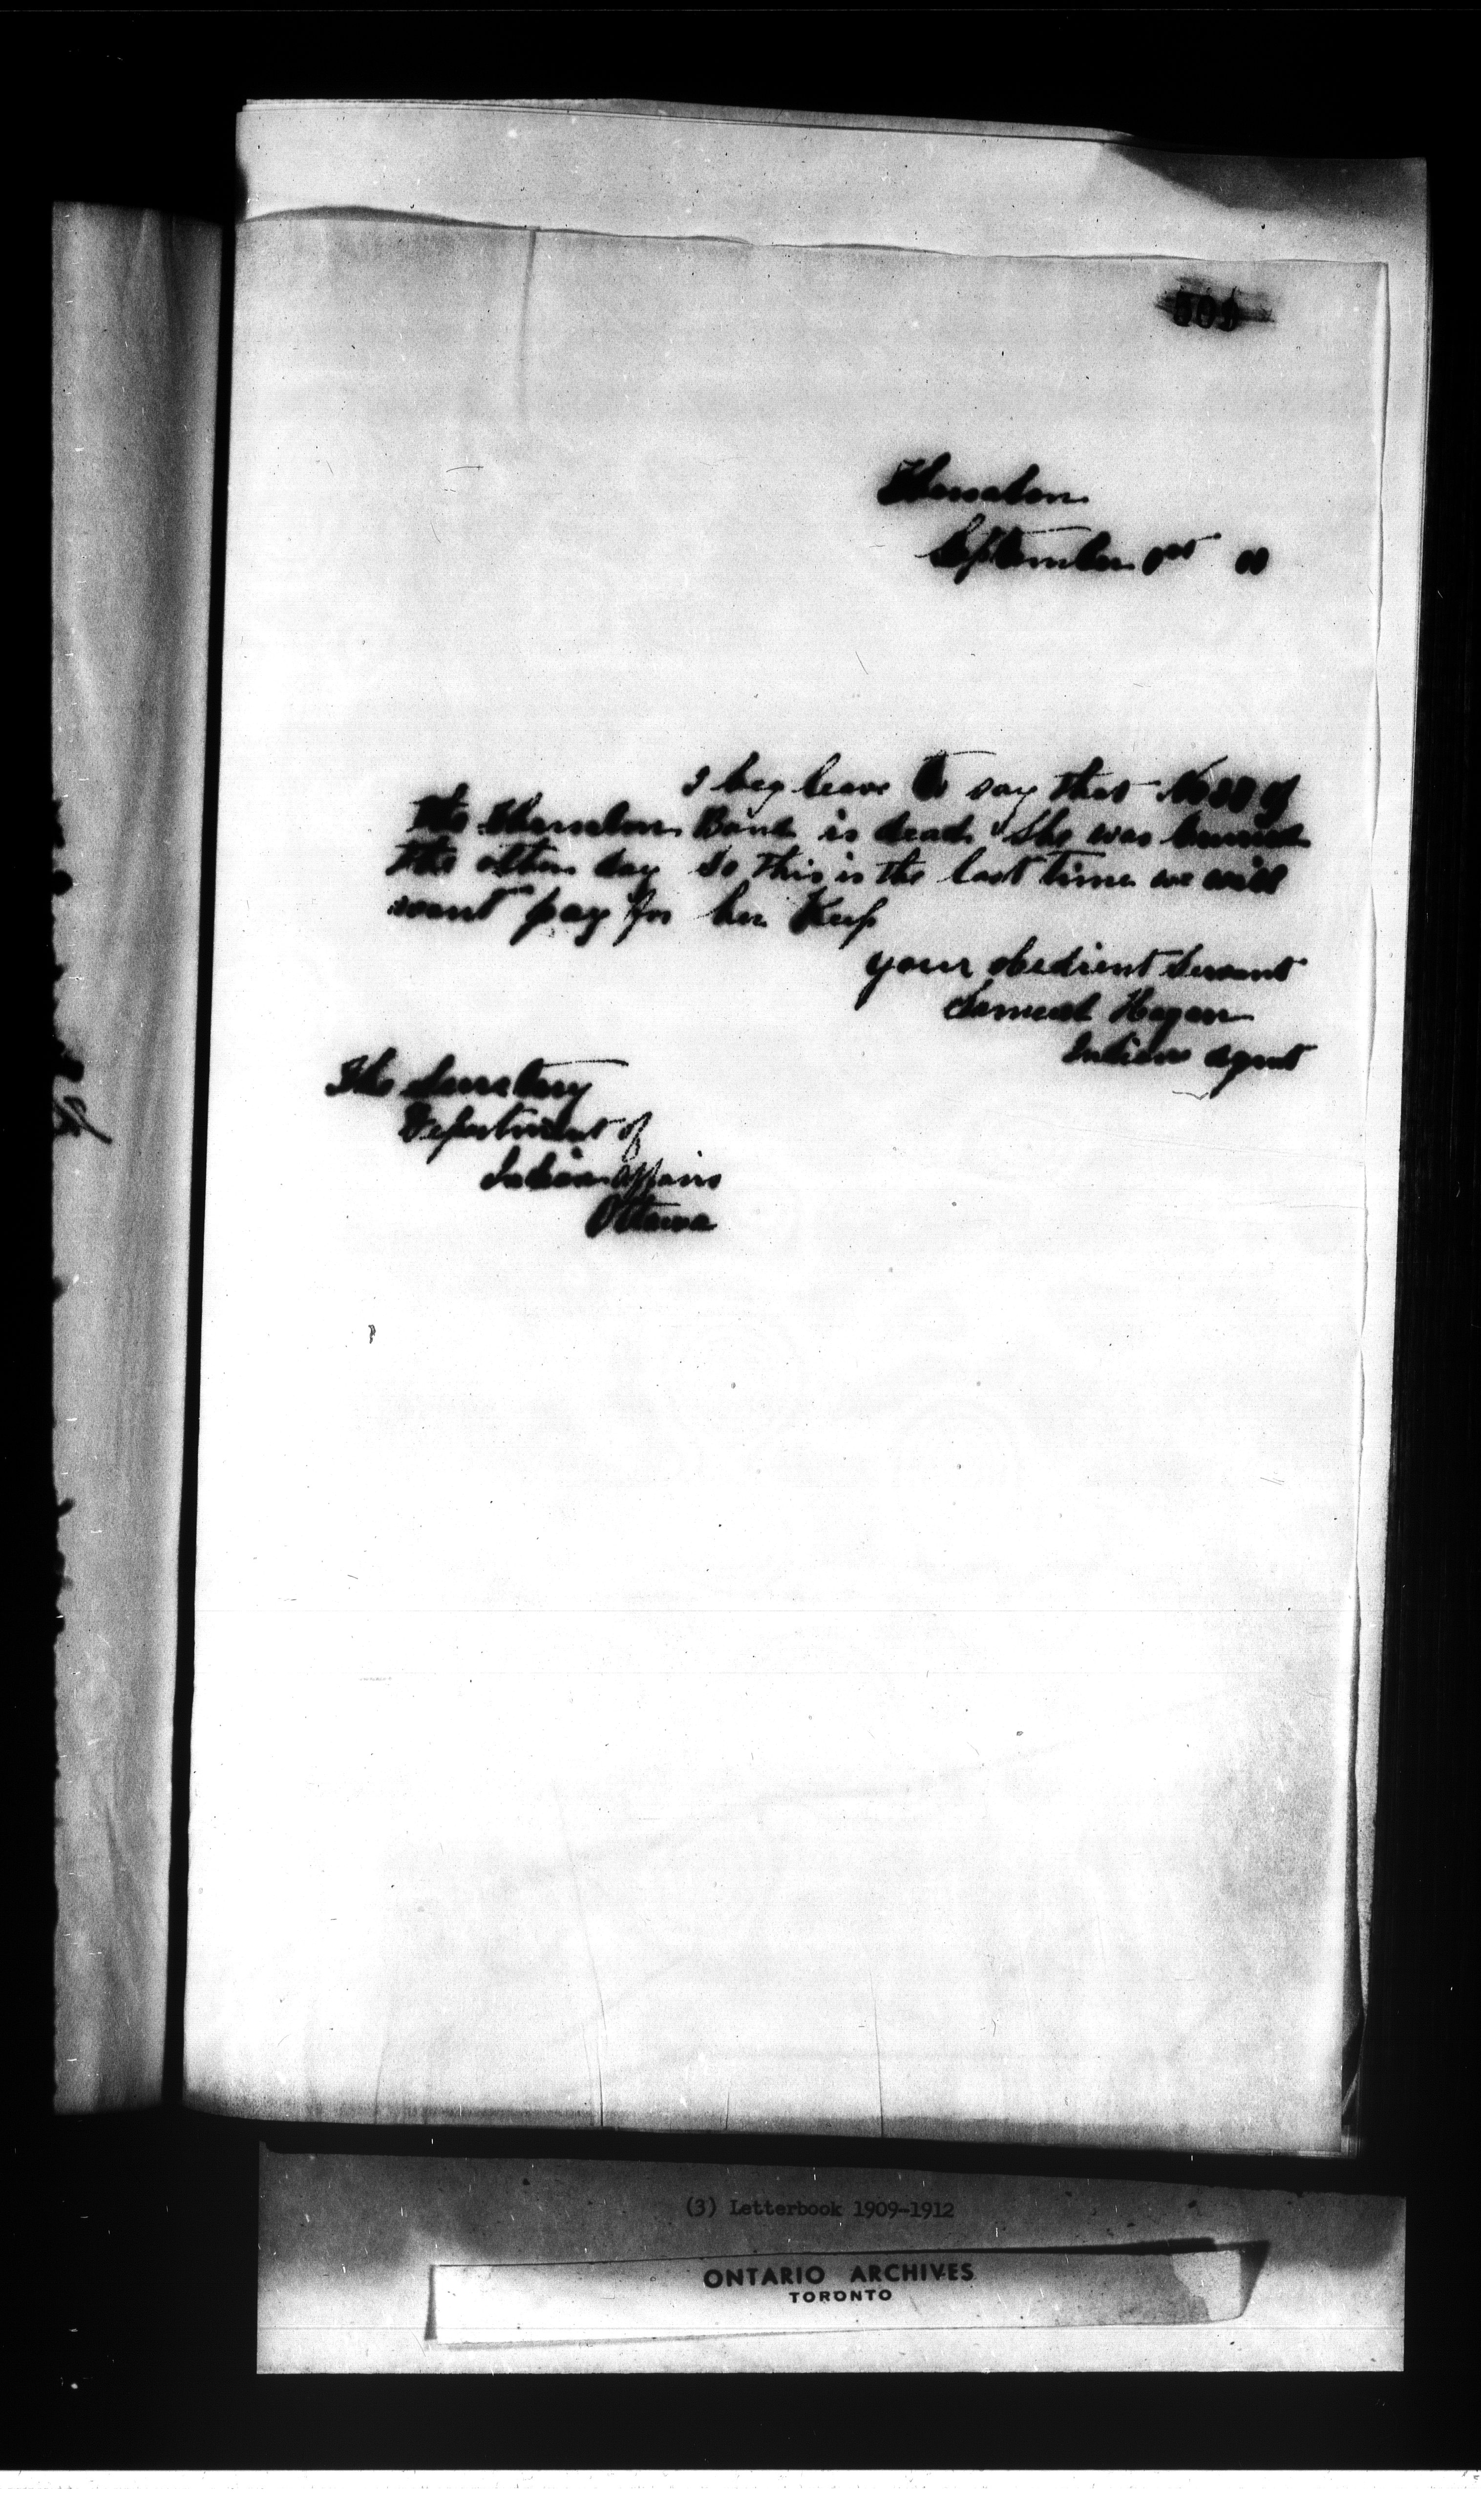 Thessalon
September 1st
I beg leave to say that No of
the Thessalon Band is dead She was buried
the other day So this is the last time we will
want pay for her Keep
your obedient Servant
Samuel Hagan
Indian Agent
The Secretary
Department of
Indian Affairs
Ottawa
(3) Letterbook 1909-1912
ONTARIO ARCHIVES
TORONTO